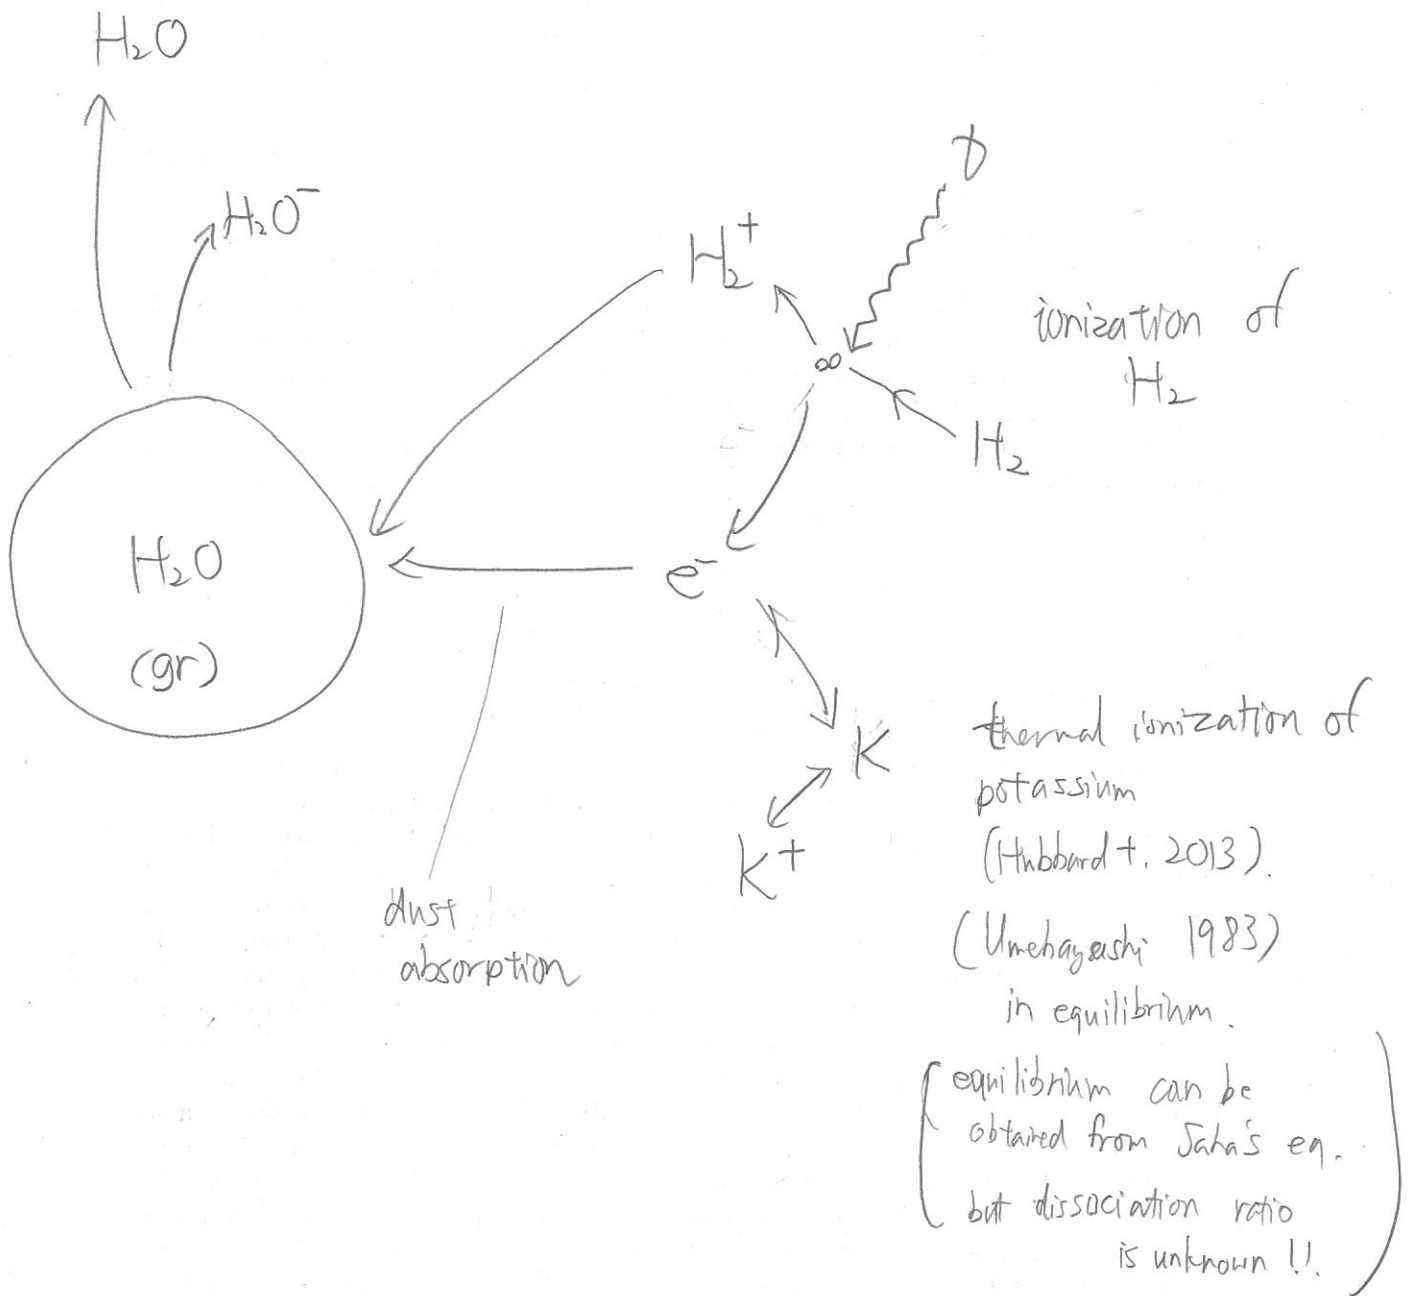 H₂O
H₂O⁻
H₂⁺
ionization of
H₂
H₂
H₂O
(gr)
e⁻
K
K⁺
thermal ionization of
potassium
(Hubbard +. 2013).
(Umebayashi 1983)
in equilibrium.
equilibrium can be
obtained from Saha's eq.
but dissociation ratio
is unknown !!.
dust
absorption